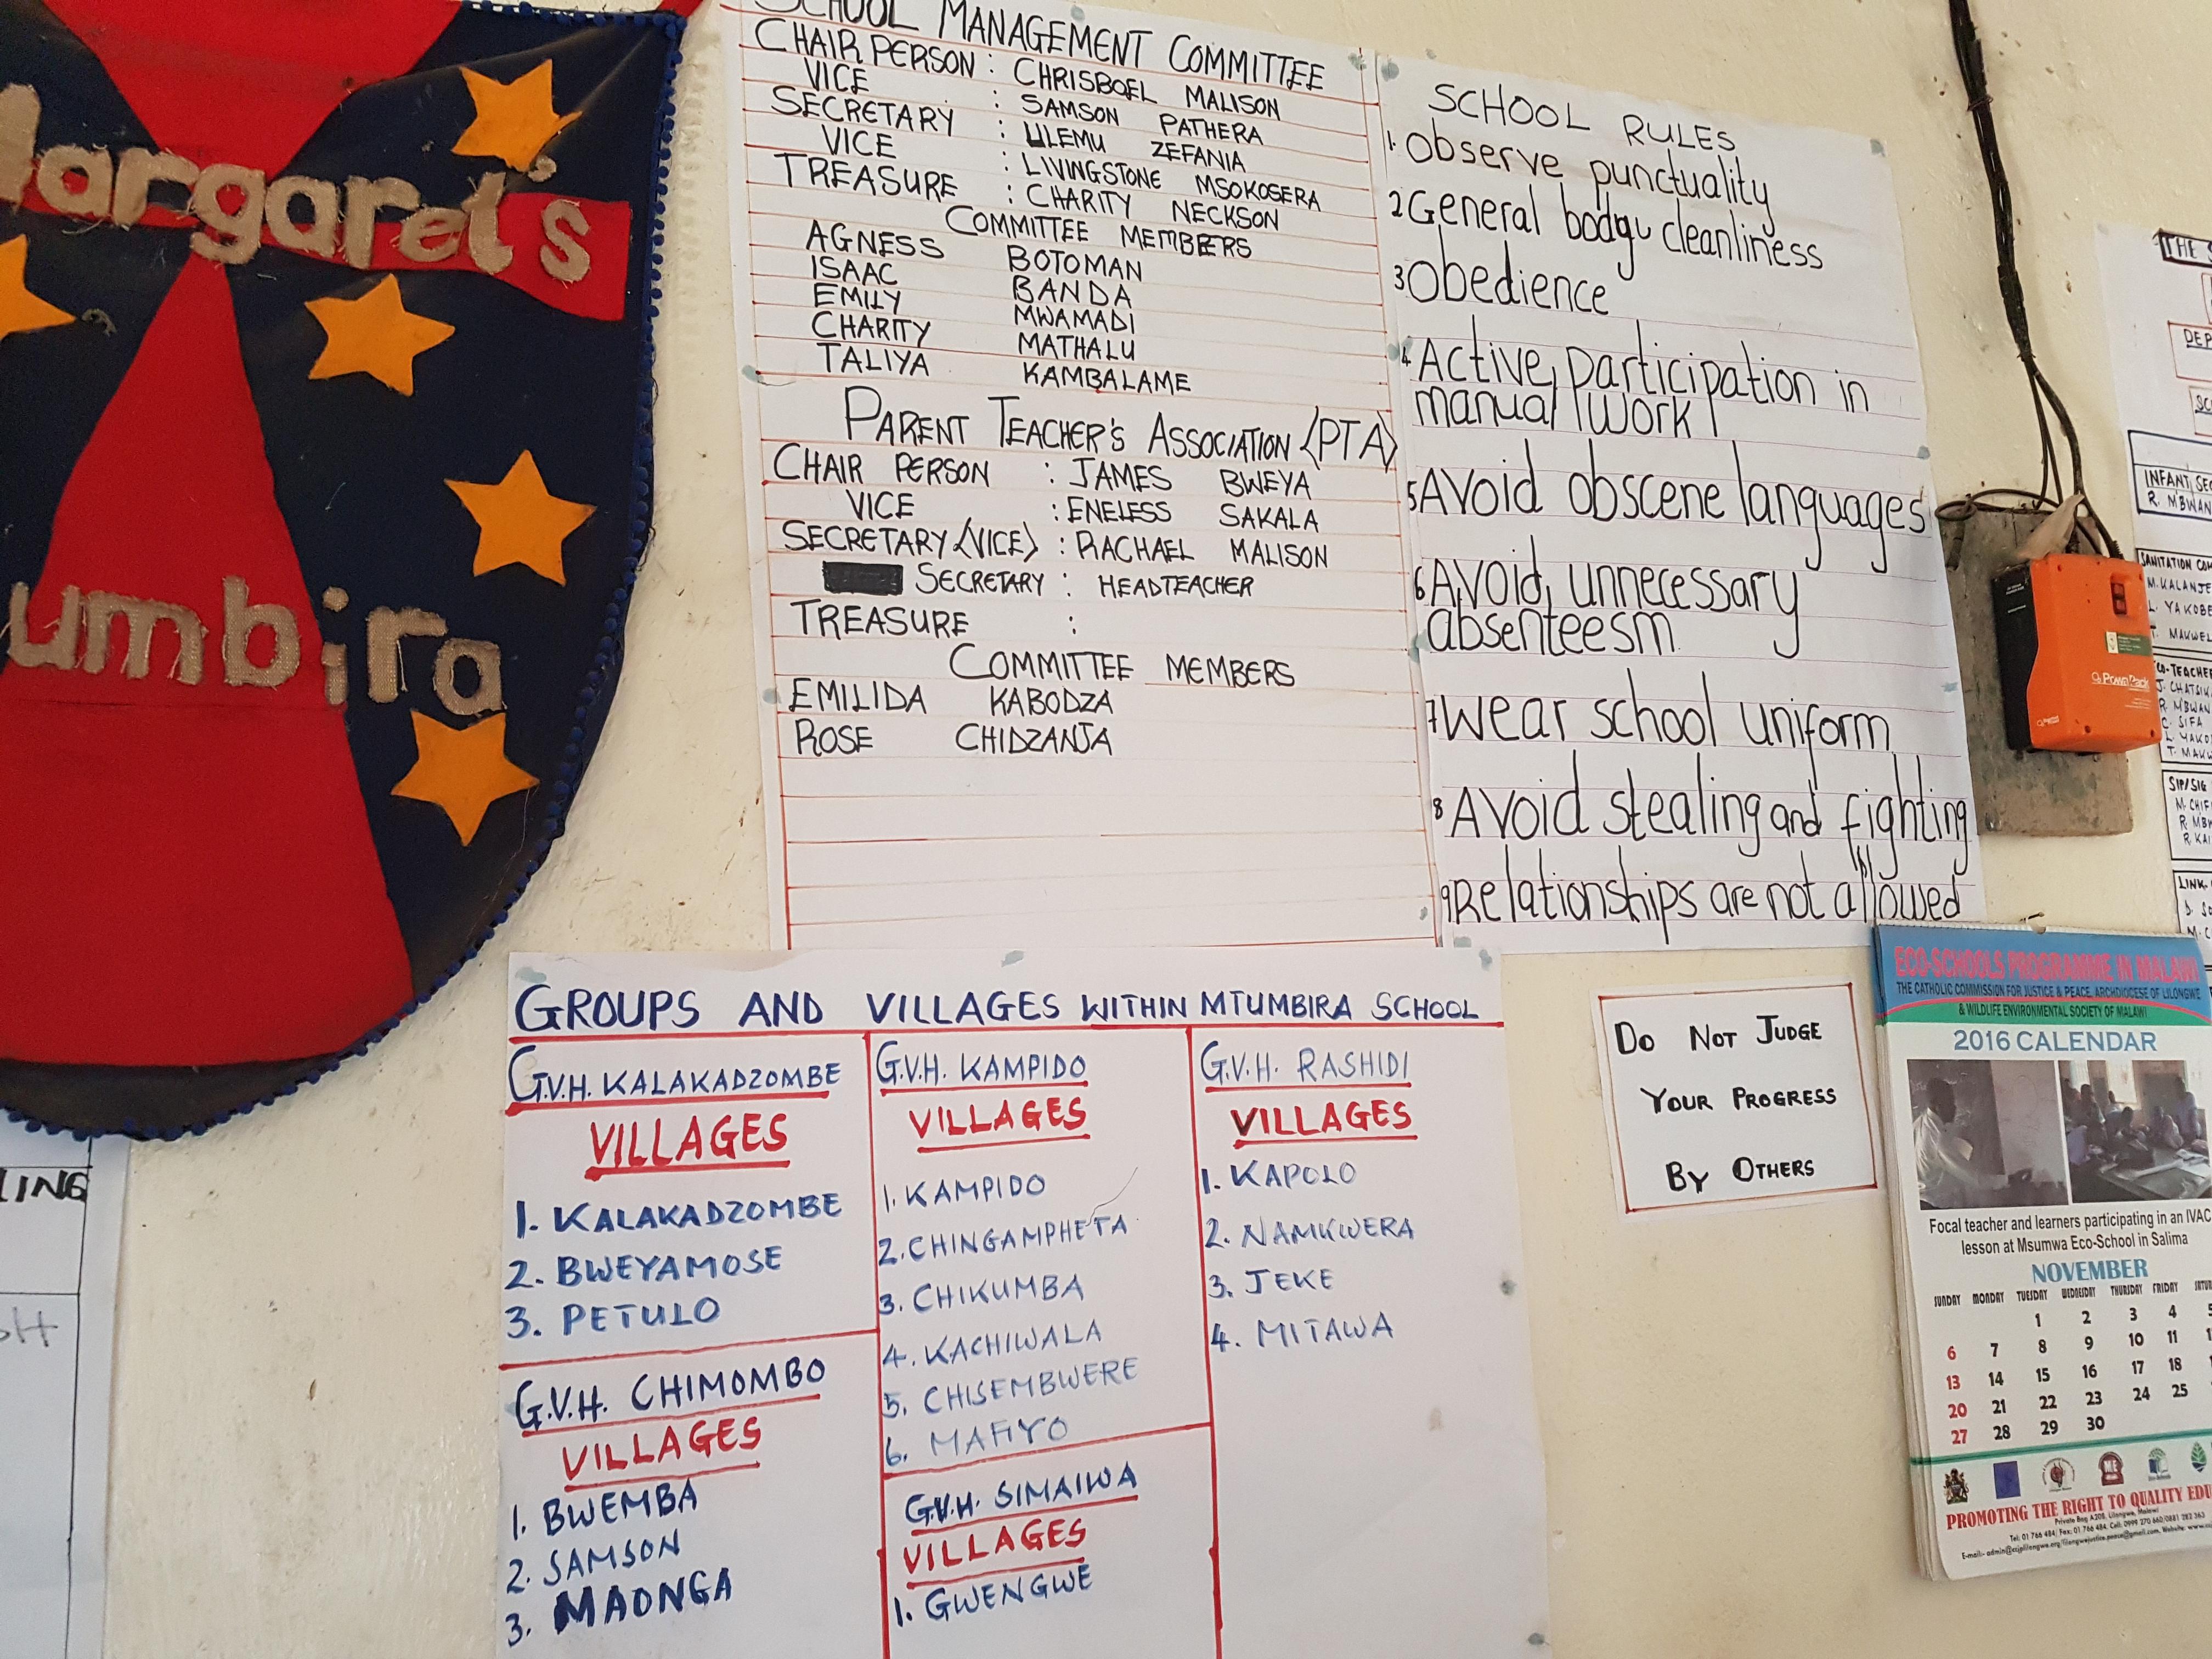 Margaret's
umbira
SCHOOL MANAGEMENT COMMITTEE
CHAIR PERSON : CHRISBOEL MALISON
VICE : SAMSON PATHERA
SECRETARY : ULEMU ZEFANIA
VICE : LIVINGSTONE MSOKOSERA
TREASURE : CHARITY NECKSON
COMMITTEE MEMBERS
AGNESS BOTOMAN
ISAAC BANDA
EMILY MWAMADI
CHARITY MATHALU
TALIYA KAMBALAME
PARENT TEACHER'S ASSOCIATION (PTA)
CHAIR PERSON : JAMES BWEYA
VICE : ENELESS SAKALA
SECRETARY (VICE) : RACHAEL MALISON
SECRETARY : HEADTEACHER
TREASURE :
COMMITTEE MEMBERS
EMILIDA KABODZA
ROSE CHIDZANJA
SCHOOL RULES
1. Observe punctuality
2 General body cleanliness
3 Obedience
4 Active participation in
manual work
5 Avoid obscene languages
6 Avoid unnecessary
absenteesm
7 Wear school uniform
8 Avoid stealing and fighting
9 Relationships are not allowed
GROUPS AND VILLAGES WITHIN MTUMBIRA SCHOOL
G.V.H. KALAKADZOMBE
VILLAGES
1. KALAKADZOMBE
2. BWEYAMOSE
3. PETULO
G.V.H. CHIMOMBO
VILLAGES
1. BWEMBA
2. SAMSON
3. MAONGA
G.V.H. KAMPIDO
VILLAGES
1. KAMPIDO
2. CHINGAMPHETA
3. CHIKUMBA
4. KACHIWALA
5. CHISEMBWERE
6. MAFIYO
G.V.H. SIMAIWA
VILLAGES
1. GWENGWE
G.V.H. RASHIDI
VILLAGES
1. KAPOLO
2. NAMKWERA
3. JEKE
4. MITAWA
DO NOT JUDGE
YOUR PROGRESS
BY OTHERS
ECO-SCHOOLS PROGRAMME IN MALAWI
THE CATHOLIC COMMISSION FOR JUSTICE & PEACE, ARCHDIOCESE OF LILONGWE
& WILDLIFE ENVIRONMENTAL SOCIETY OF MALAWI
2016 CALENDAR
Focal teacher and learners participating in an IVAC
lesson at Msumwa Eco-School in Salima
NOVEMBER
SUNDAY MONDAY TUESDAY WEDNESDAY THURSDAY FRIDAY SATUR
1 2 3 4 5
6 7 8 9 10 11
13 14 15 16 17 18
20 21 22 23 24 25
27 28 29 30
PROMOTING THE RIGHT TO QUALITY EDU
Private Bag A208, Lilongwe, Malawi
Tel: 01 766 484/ Fax: 01 766 484
THE S
DEP
INFANT SEC
R. MBWAN
SANITATION COM
M. KALANJE
L. YAKOBE
T. MAKWEL
CO-TEACHER
C. SIFA
SIP/SIG
LINK
LING
PowaPack